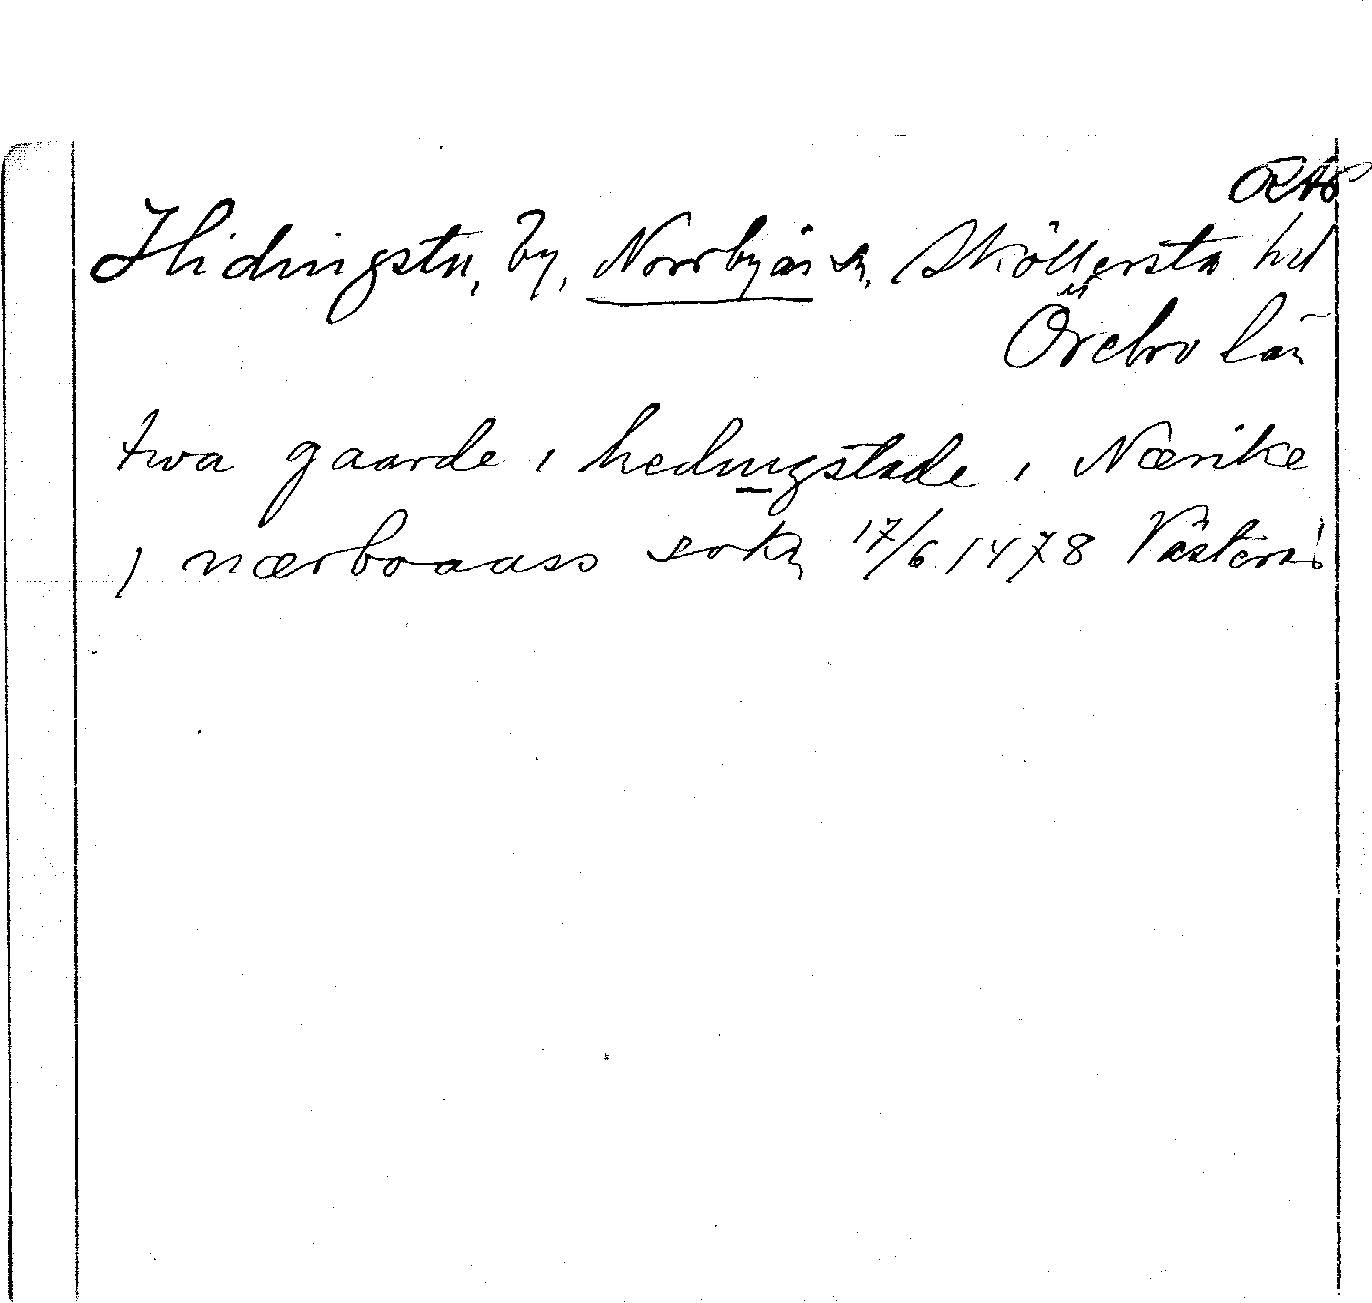 Hidingsta, by, Norrbyås sn, Sköllersta hd
Örebro län
twa gaarde i hedingstade i Nærike
i nærboaass sokn 17/6 1478 Västerås